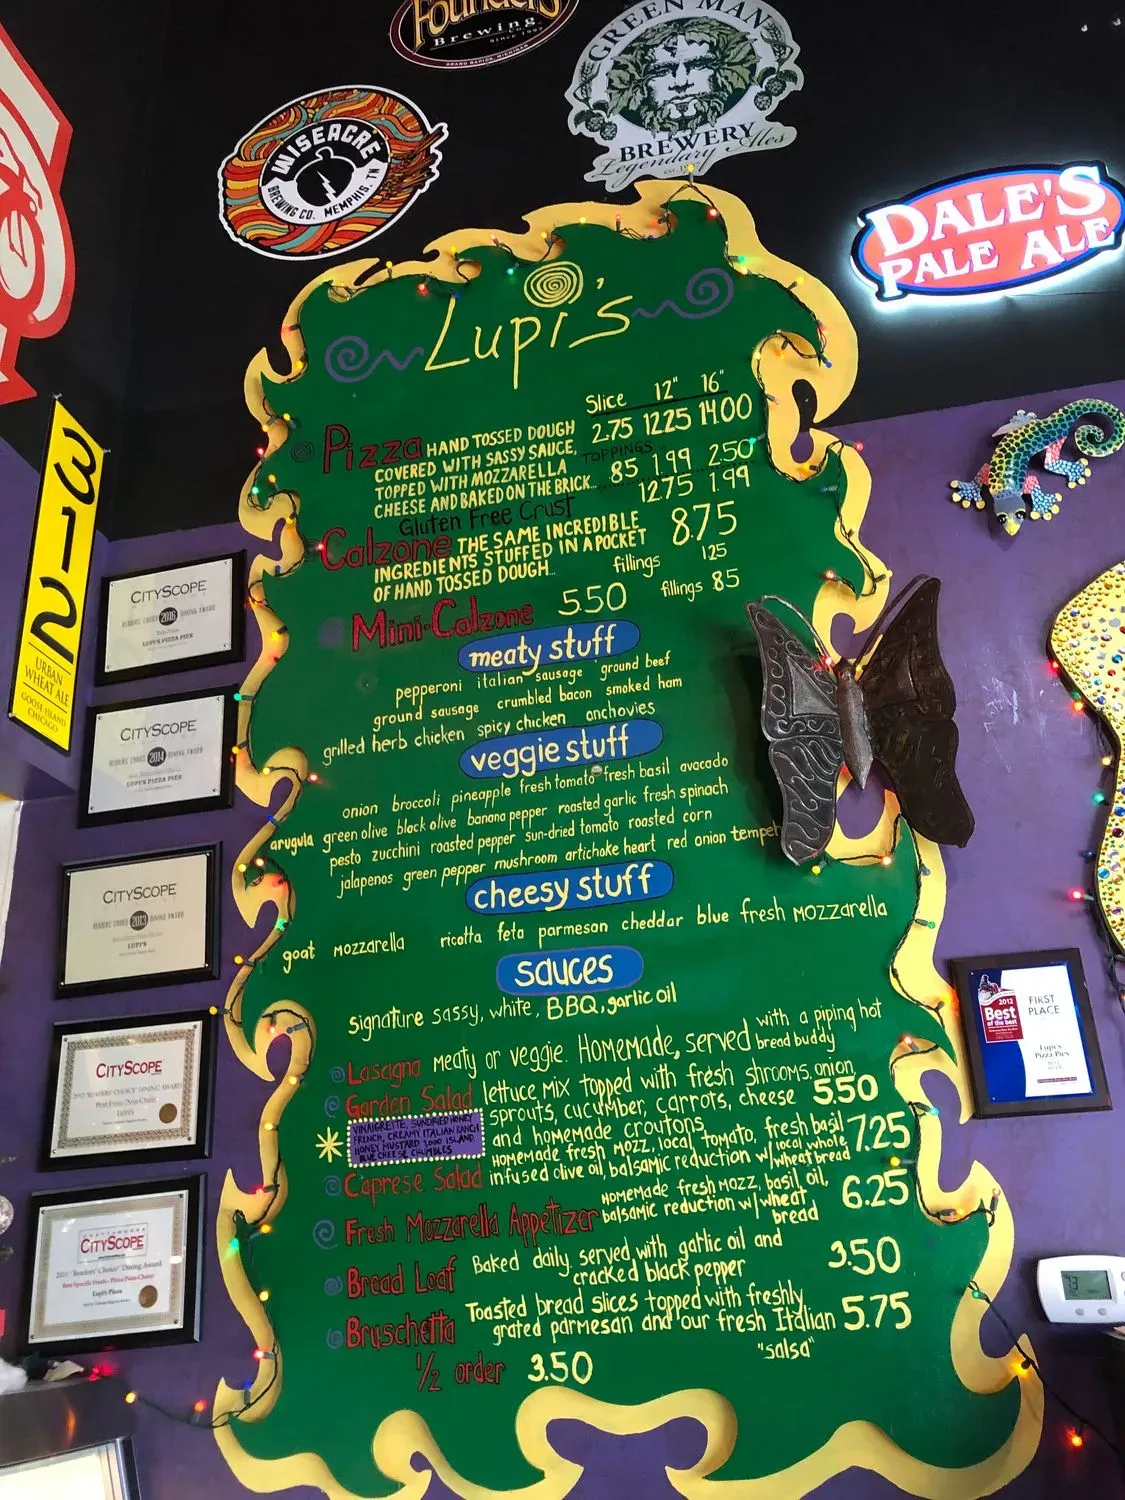 Founders
Brewing Co.
Since 1997
GRAND RAPIDS, MICHIGAN
GREEN MAN
BREWERY
Legendary Ales
WISEACRE
BREWING CO. MEMPHIS, TN
DALE'S
PALE ALE
312
URBAN
WHEAT ALE
GOOSE ISLAND
CHICAGO
Lupi's
Slice 12" 16"
Pizza HAND TOSSED DOUGH 2.75 12.25 14.00
COVERED WITH SASSY SAUCE, TOPPINGS
TOPPED WITH MOZZARELLA .85 1.99 2.50
CHEESE AND BAKED ON THE BRICK...
Gluten Free Crust 12.75 1.99
Calzone THE SAME INCREDIBLE 8.75
INGREDIENTS STUFFED IN A POCKET
OF HAND TOSSED DOUGH... fillings 1.25
Mini-Calzone 5.50 fillings .85
meaty stuff
pepperoni italian sausage ground beef
ground sausage crumbled bacon smoked ham
grilled herb chicken spicy chicken anchovies
veggie stuff
onion broccoli pineapple fresh tomato fresh basil avocado
arugula green olive black olive banana pepper roasted garlic fresh spinach
pesto zucchini roasted pepper sun-dried tomato roasted corn
jalapenos green pepper mushroom artichoke heart red onion tempeh
cheesy stuff
goat mozzarella ricotta feta parmesan cheddar blue fresh mozzarella
sauces
signature sassy, white, BBQ, garlic oil
Lasagna meaty or veggie. Homemade, served with a piping hot
bread buddy
Garden Salad lettuce mix topped with fresh shrooms, onion,
sprouts, cucumber, carrots, cheese 5.50
and homemade croutons
VINAIGRETTE, SUNDRIED HONEY
FRENCH, CREAMY ITALIAN, RANCH
HONEY MUSTARD, 1000 ISLAND,
BLUE CHEESE CRUMBLES
Caprese Salad Homemade fresh mozz, local tomato, fresh basil 7.25
infused olive oil, balsamic reduction w/ local whole
wheat bread
Fresh Mozzarella Appetizer Homemade fresh mozz, basil, oil, 6.25
balsamic reduction w/ wheat
bread
Bread Loaf Baked daily. served with garlic oil and 3.50
cracked black pepper
Bruschetta Toasted bread slices topped with freshly
grated parmesan and our fresh Italian 5.75
"salsa"
1/2 order 3.50
CITYSCOPE
READERS' CHOICE 2016 DINING AWARD
LUPI'S PIZZA PIES
CITYSCOPE
READERS' CHOICE 2014 DINING AWARD
LUPI'S PIZZA PIES
CITYSCOPE
READERS' CHOICE 2013 DINING AWARD
LUPI'S
CITYSCOPE
2012 READERS' CHOICE DINING AWARD
Best Pizza (Non-Chain)
LUPI'S
CITYSCOPE
2011 Readers' Choice Dining Award
Best Specific Foods - Pizza (Non-Chain)
Lupi's Pizza
2012
Best
of the best
FIRST
PLACE
Lupi's
Pizza Pies
73